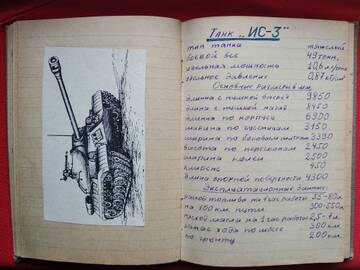 Танк „ИС-3"
тип танка тяжелый
боевой вес 49 тонн
удельная мощность 10,6 л.с/тн
удельное давление 0,87 кг/см²
Основные размеры мм
длинна с пушкой вперед 9850
длинна с пушкой назад 8450
длинна по корпусу 6900
ширина по гусеницам 3150
ширина по боковым щиткам 3390
высота по перископам 2450
ширина колеи 2500
клиренс 450
длинна опорной поверхности 4300
Эксплуатационные данные:
расход топлива на 1 час работы 55-80 л
на 100 км пути 300-550 л
расход масла на 1 час работы 2,5-4 л
запас хода по шоссе 300 км
по грунту 200 км